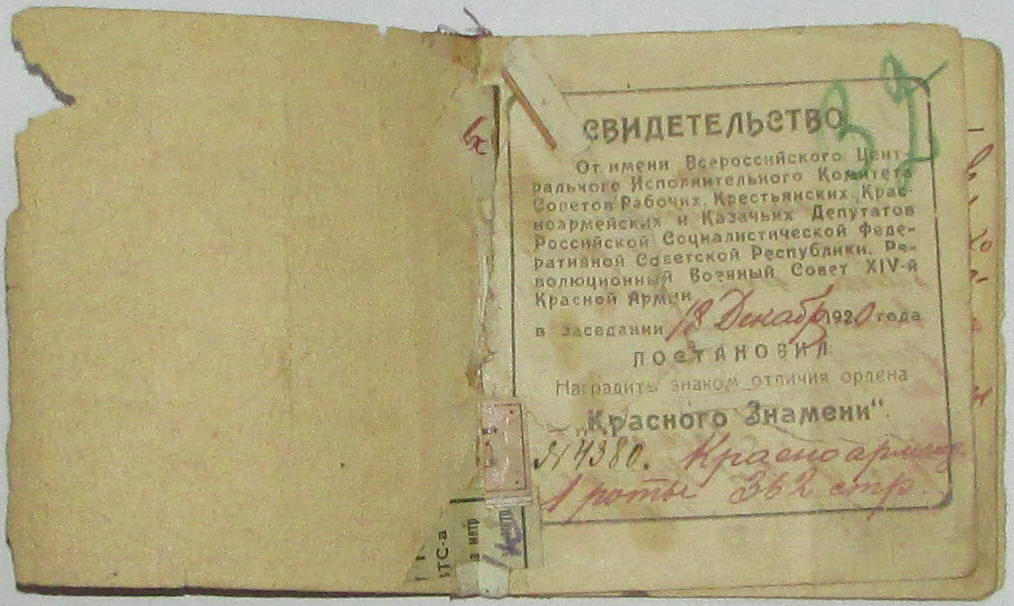 32
СВИДЕТЕЛЬСТВО
От имени Всероссийского Цент-
рального Исполнительного Комитета
Советов Рабочих, Крестьянских, Крас-
ноармейских и Казачьих Депутатов
Российской Социалистической Феде-
ративной Советской Республики, Ре-
волюционный Военный Совет XIV-й
Красной Армии
в заседании 18 Декабр 1920 года
ПОСТАНОВИЛ
Наградить знаком отличия ордена
„Красного Знамени“.
№ 4380. Красноармейца
1 роты 362 стр.
ТС-а
а метр